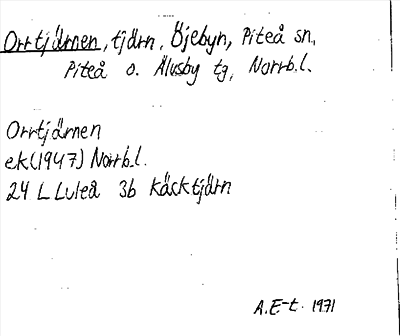 Orrtjärnen, tjärn, Öjebyn, Piteå sn,
Piteå o. Älvsby tg, Norrb.l.
Orrtjärnen
ek(1947) Norrb.l.
24 L Luleå 3b Käcktjärn
A.E-t. 1971